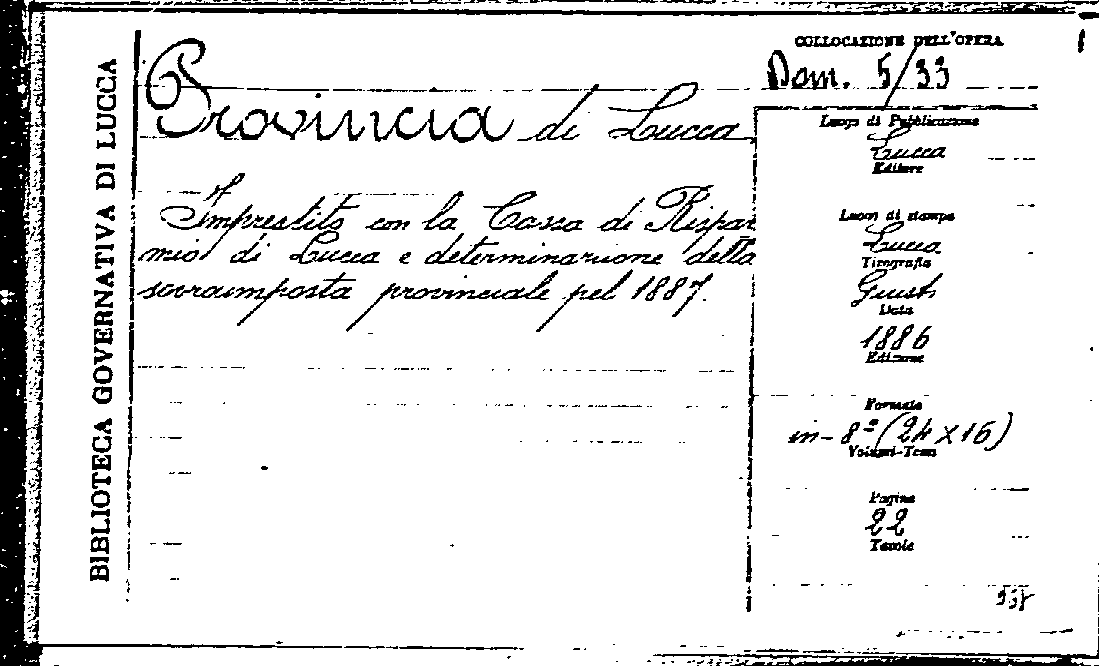 BIBLIOTECA GOVERNATIVA DI LUCCA
COLLOCAZIONE DELL'OPERA
Dom. 5/33
Provincia di Lucca
Imprestito con la Cassa di Rispar
mio di Lucca e determinazione della
sovraimposta provinciale pel 1887.
Luogo di Pubblicazione
Lucca
Editore
Luogo di stampa
Lucca
Tipografia
Giusti
Data
1886
Edizione
Formato
in-8º (24 x 16)
Volumi-Tomi
Pagine
22
Tavole